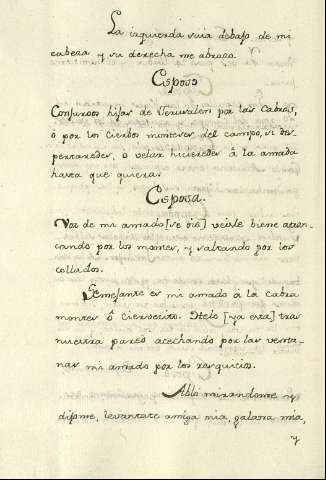 La izquierda suia debajo de mi
cabeza y su derecha me abraza.
Esposo
Conjuroos hijas de Jerusalen por las Cabras,
ò por los Ciervos monteses del campo, si dis
pertaredes, o velar hicieredes â la amada
hasta que quiera.
Esposa.
Voz de mi amado [se oie] veisle biene atran
cando por los montes, y saltando por los
collados.
Semejante es mi amado â la cabra
montes ô Ciervecito. Helo [ya està] tras
nuestra pared acechando por las venta-
nas mi amado por los resquicios.
Ablo mi amado y
dijome, levantate amiga mia, galana mia,
y